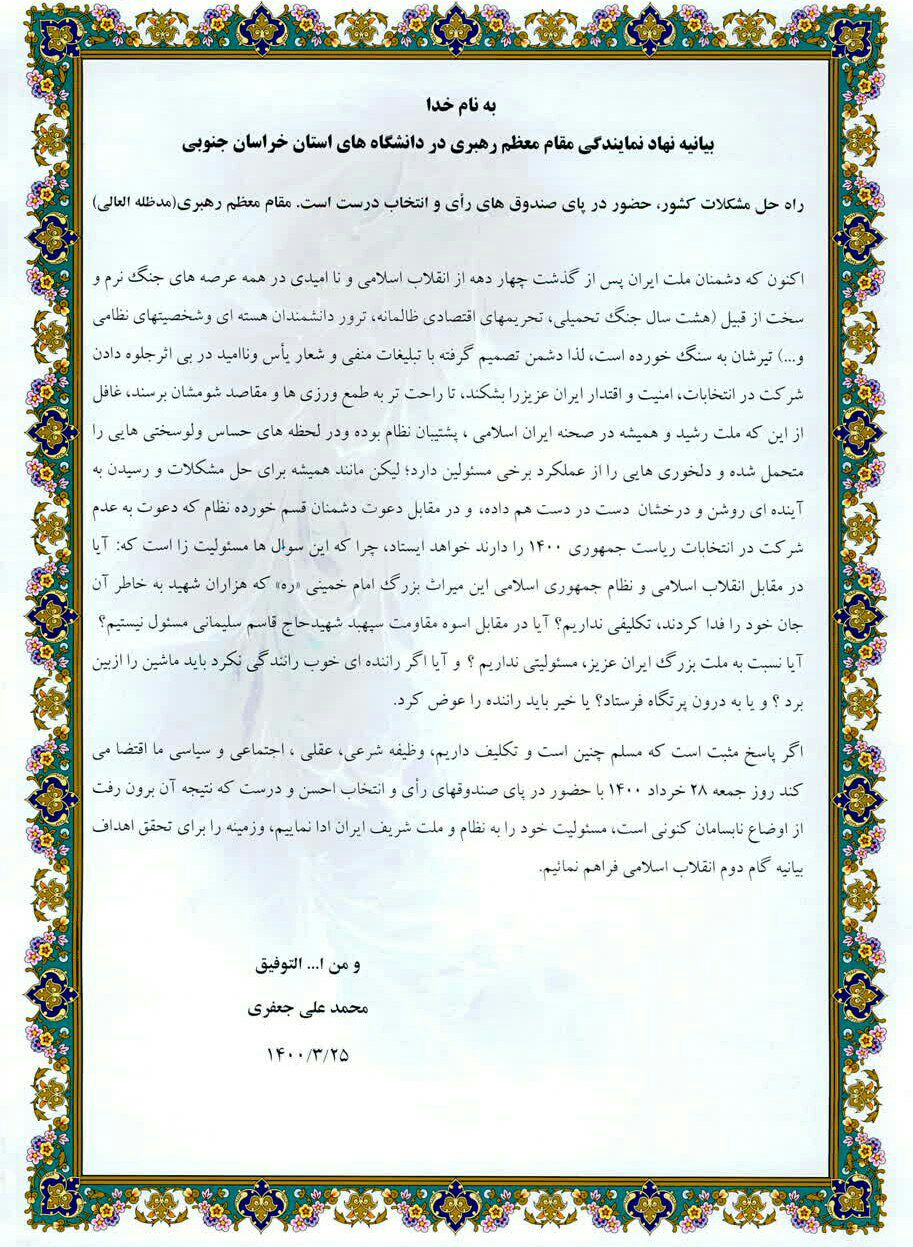 به نام خدا
بیانیه نهاد نمایندگی مقام معظم رهبری در دانشگاه های استان خراسان جنوبی
راه حل مشکلات کشور، حضور در پای صندوق های رأی و انتخاب درست است. مقام معظم رهبری(مدظله العالی)
اکنون که دشمنان ملت ایران پس از گذشت چهار دهه از انقلاب اسلامی و نا امیدی در همه عرصه های جنگ نرم و
سخت از قبیل (هشت سال جنگ تحمیلی، تحریمهای اقتصادی ظالمانه، ترور دانشمندان هسته ای وشخصیتهای نظامی
و...) تیرشان به سنگ خورده است، لذا دشمن تصمیم گرفته با تبلیغات منفی و شعار یأس وناامید در بی اثرجلوه دادن
شرکت در انتخابات، امنیت و اقتدار ایران عزیزرا بشکند، تا راحت تر به طمع ورزی ها و مقاصد شومشان برسند، غافل
از این که ملت رشید و همیشه در صحنه ایران اسلامی ، پشتیبان نظام بوده ودر لحظه های حساس ولوسختی هایی را
متحمل شده و دلخوری هایی را از عملکرد برخی مسئولین دارد؛ لیکن مانند همیشه برای حل مشکلات و رسیدن به
آینده ای روشن و درخشان دست در دست هم داده، و در مقابل دعوت دشمنان قسم خورده نظام که دعوت به عدم
شرکت در انتخابات ریاست جمهوری ۱۴۰۰ را دارند خواهد ایستاد، چرا که این سوال ها مسئولیت زا است که: آیا
در مقابل انقلاب اسلامی و نظام جمهوری اسلامی این میراث بزرگ امام خمینی «ره» که هزاران شهید به خاطر آن
جان خود را فدا کردند، تکلیفی نداریم؟ آیا در مقابل اسوه مقاومت سپهبد شهیدحاج قاسم سلیمانی مسئول نیستیم؟
آیا نسبت به ملت بزرگ ایران عزیز، مسئولیتی نداریم ؟ و آیا اگر راننده ای خوب رانندگی نکرد باید ماشین را ازبین
برد ؟ و یا به درون پرتگاه فرستاد؟ یا خیر باید راننده را عوض کرد.
اگر پاسخ مثبت است که مسلم چنین است و تکلیف داریم، وظیفه شرعی، عقلی ، اجتماعی و سیاسی ما اقتضا می
کند روز جمعه ۲۸ خرداد ۱۴۰۰ با حضور در پای صندوقهای رأی و انتخاب احسن و درست که نتیجه آن برون رفت
از اوضاع نابسامان کنونی است، مسئولیت خود را به نظام و ملت شریف ایران ادا نماییم، وزمینه را برای تحقق اهداف
بیانیه گام دوم انقلاب اسلامی فراهم نمائیم.
و من ا... التوفیق
محمد علی جعفری
۱۴۰۰/۳/۲۵